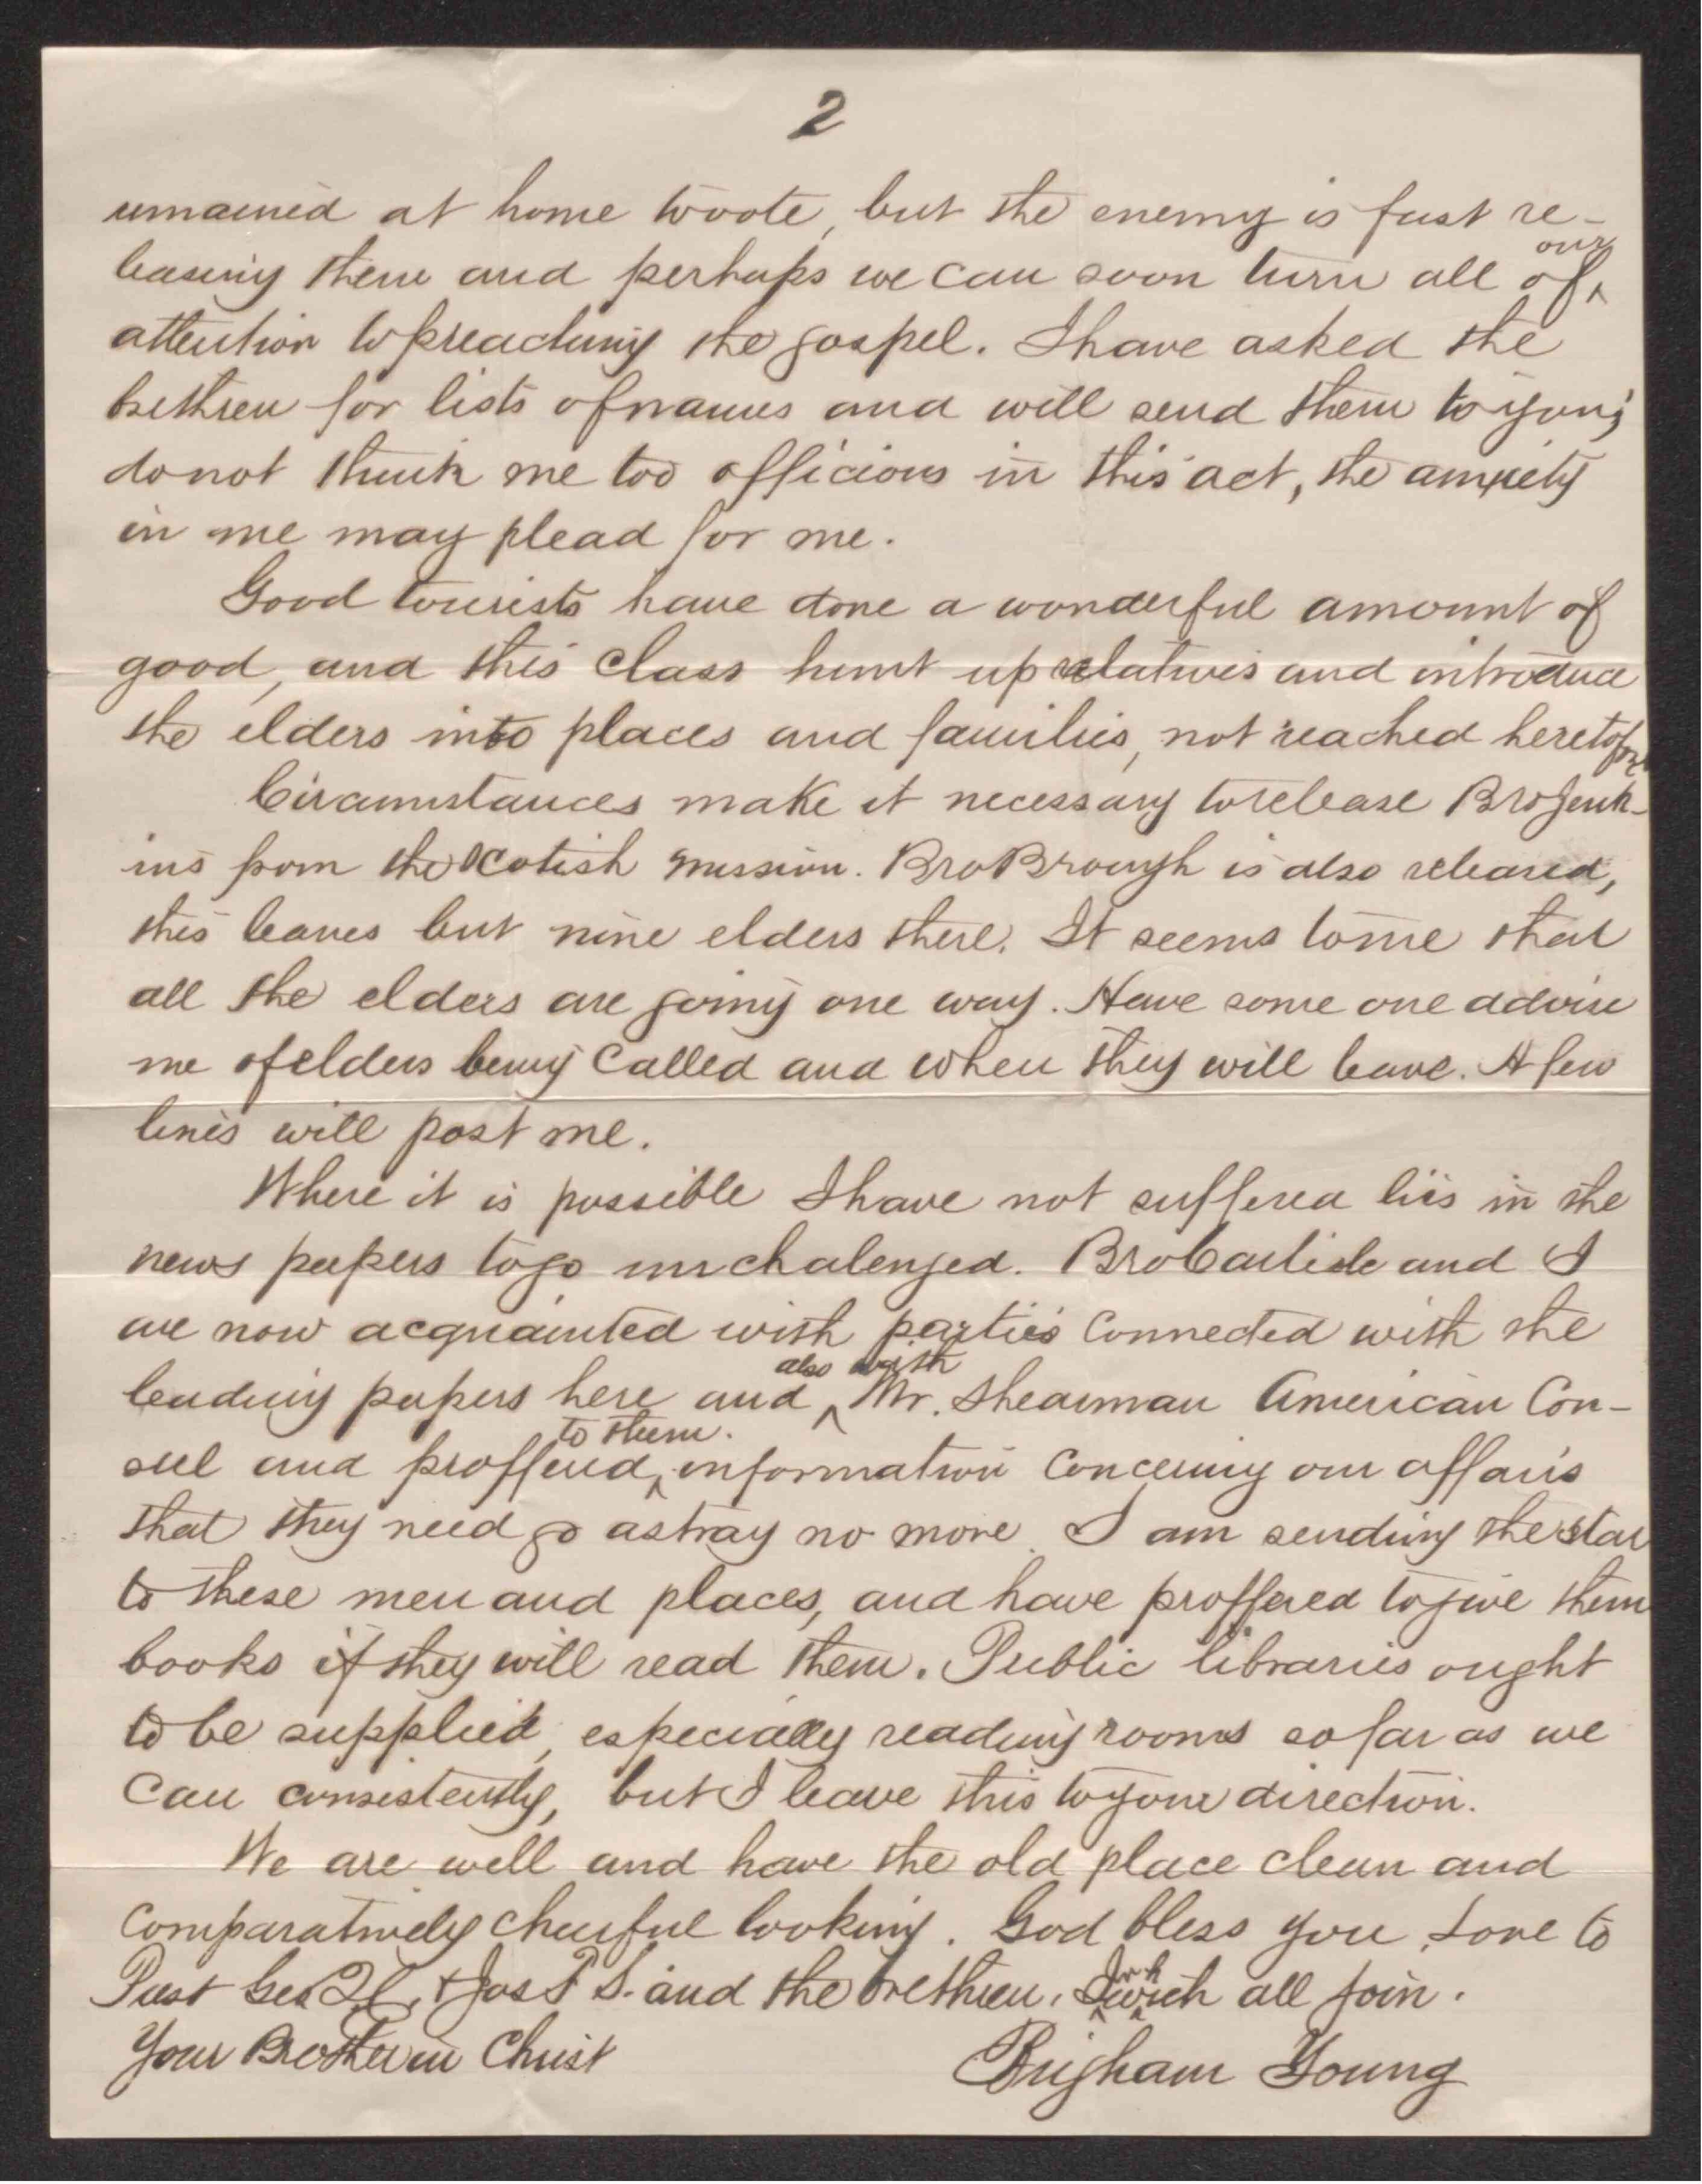 2
remained at home to vote, but the enemy is fast re-
leasing them and perhaps we can soon turn all of our
attention to preaching the gospel. I have asked the
brethren for lists of names and will send them to you;
do not think me too officious in this act, the anxiety
in me may plead for me.
Good tourists have done a wonderful amount of
good, and this class hunt up relatives and introduce
the elders into places and families, not reached heretofore
Circumstances make it necessary to release Bro Jenk-
ins from the Scotish mission. Bro Brough is also released,
this leaves but nine elders there. It seems to me that
all the elders are going one way. Have some one advise
me of elders being called and when they will leave. A few
lines will post me.
Where it is possible I have not suffered lies in the
news papers to go unchalenged. Bro Carlisle and I
are now acquainted with parties connected with the
leading papers here and also with Mr. Shearman American Con-
sul and proffered to them. information concerning our affairs
that they need go astray no more. I am sending the star
to these men and places, and have proffered to give them
books if they will read them. Public libraries ought
to be supplied, especially reading rooms so far as we
can consistently, but I leave this to your direction.
We are well and have the old place clean and
comparatively cheerful looking. God bless you, Love to
Prest Geo Q C, & Jos F S. and the brethren. In which all join.
Your Brother in Christ
Brigham Young